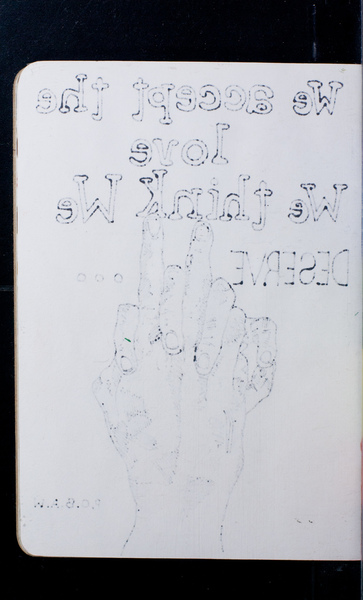 We accept the
love
We think We
DESERVE
...